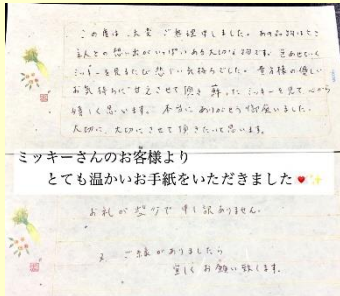 この度は、大変ご無理申しました。あの品物はとき
主人との思い出がいっぱいある大切な物です。色あせていく
ミッキーを見るたび悲しい気持ちでした。貴方様の優しい
お気持ちに甘えさせて頂き蘇ったミッキーを見て、心から
嬉しく思います。本当にありがとう御座いました。
大切に、大切にさせて頂きたいと思います。
ミッキーさんのお客様より
とても温かいお手紙をいただきました
お礼が遅れて申し訳ありません。
又、ご縁がありましたら
宜しくお願い致します。